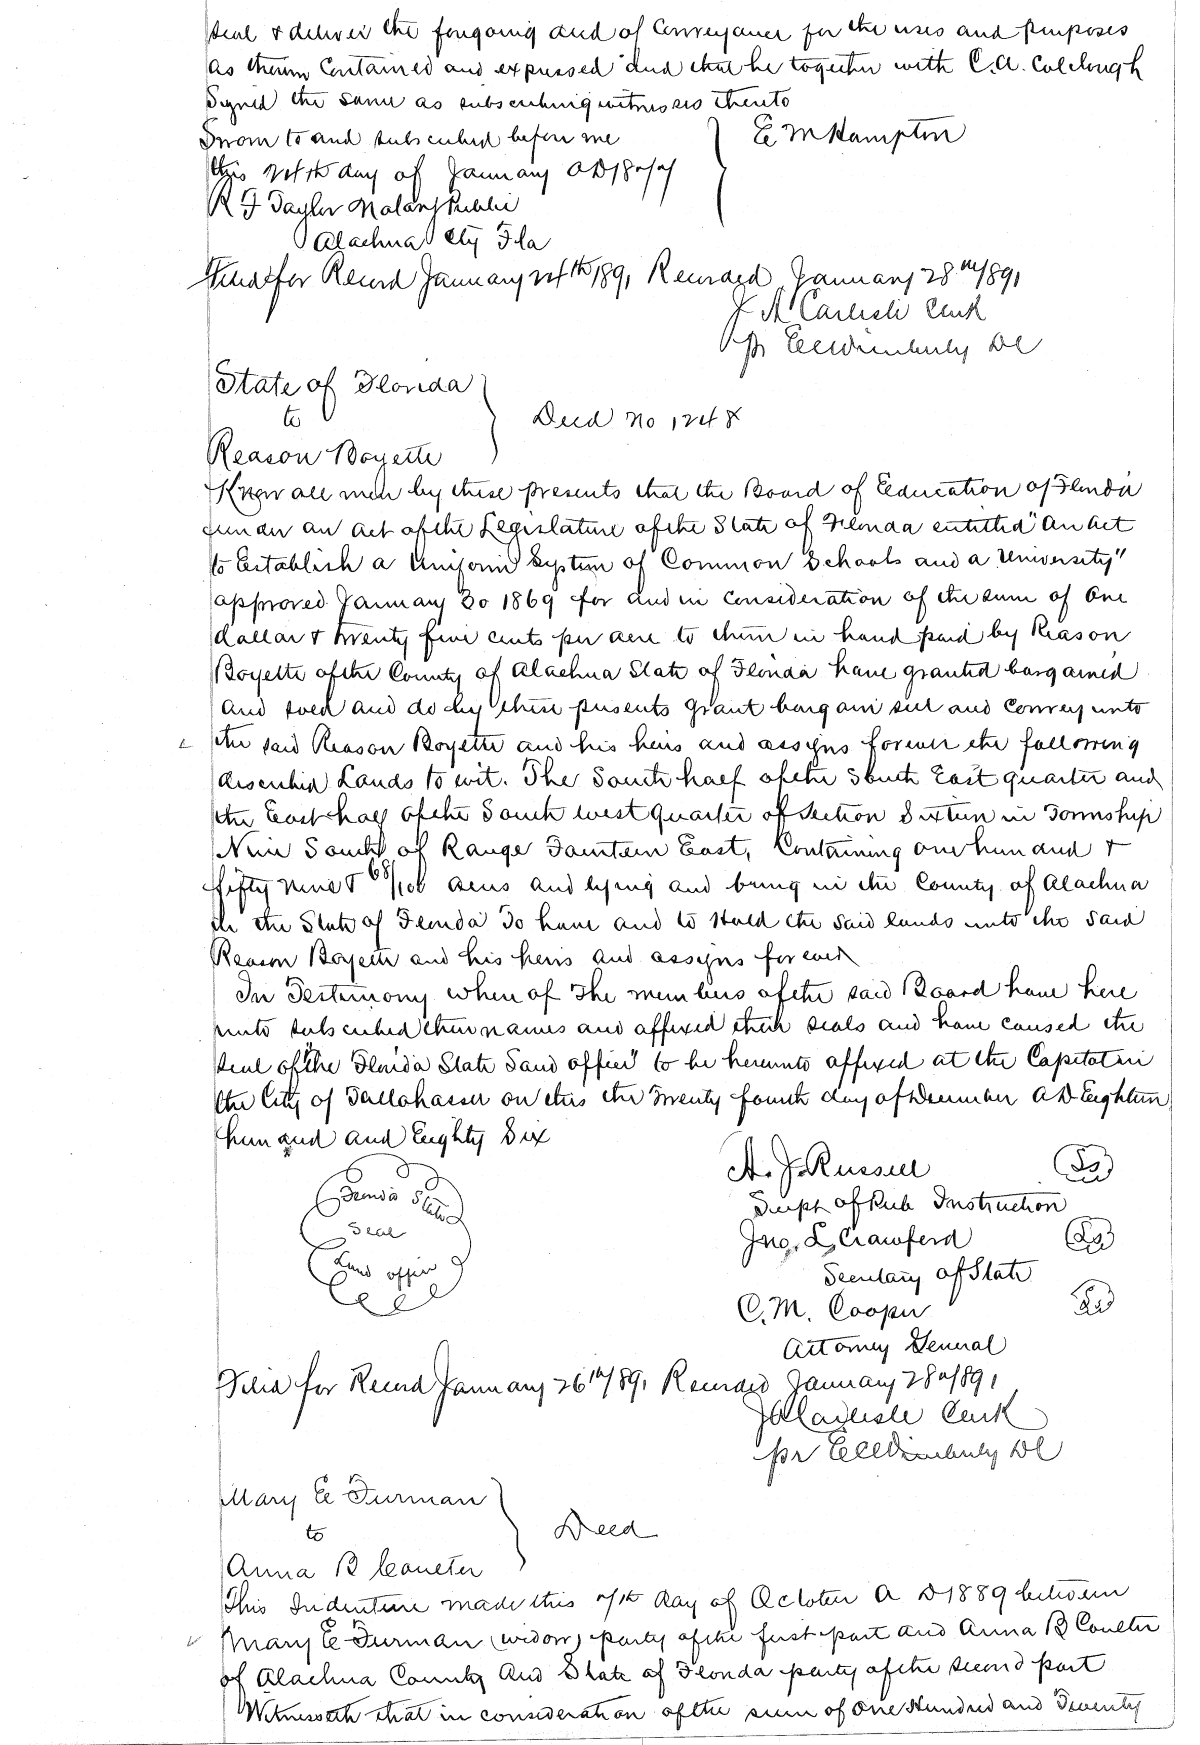 seal & deliver the foregoing deed of Conveyance for the uses and purposes
as therein Contained and expressed and that he together with C. A. Colclough
Signed the same as subscribing witnesses thereto
Sworn to and subscribed before me
E M Hampton
this 24th day of January AD
R F Taylor Notary Public
Alachua Cty Fla
Filed for Record January 24th 1891 Recorded January 28th 1891
J A Carlisle Clerk
pr E C Wimberly DC
State of Florida
to
Deed no 1248
Reason Boyette
Know all men by these presents that the Board of Education of Florida
under an act of the Legislature of the State of Florida entitled "An Act
to Establish a Uniform System of Common Schools and a University"
approved January 30 1869 for and in consideration of the sum of One
dollar & twenty five cents per acre to them in hand paid by Reason
Boyette of the County of Alachua State of Florida have granted bargained
and sold and do by these presents grant bargain sell and Convey unto
the said Reason Boyette and his heirs and assigns forever the following
described Lands to wit. The South half of the South East quarter and
the East half of the South west quarter of Section Sixteen in Township
Nine South of Range Fourteen East, Containing one hundred &
fifty nine & 68/100 acres and lying and being in the County of Alachua
in the State of Florida To have and to Hold the said lands unto the said
Reason Boyette and his heirs and assigns forever
In Testimony where of The members of the said Board have here
unto subscribed their names and affixed their seals and have caused the
seal of "the Florida State Land office" to be hereunto affixed at the Capitol in
the City of Tallahassee on this the Twenty fourth day of December AD Eighteen
hundred and Eighty Six
A. J. Russell
Ls
Supt of Pub Instruction
Florida State
Seal
Land office
Jno. L. Crawford
Ls
Secretary of State
C. M. Cooper
Ls
Attorney General
Filed for Record January 26th 1891 Recorded January 28th 1891
J A Carlisle Clerk
pr E C Wimberly DC
Mary E Furman
to
Deed
Anna B Coulter
This Indenture made this 7th day of October A D 1889 between
Mary E Furman (widow) party of the first part and Anna B Coulter
of Alachua County And State of Florida party of the second part
Witnesseth that in consideration of the sum of One Hundred and Twenty